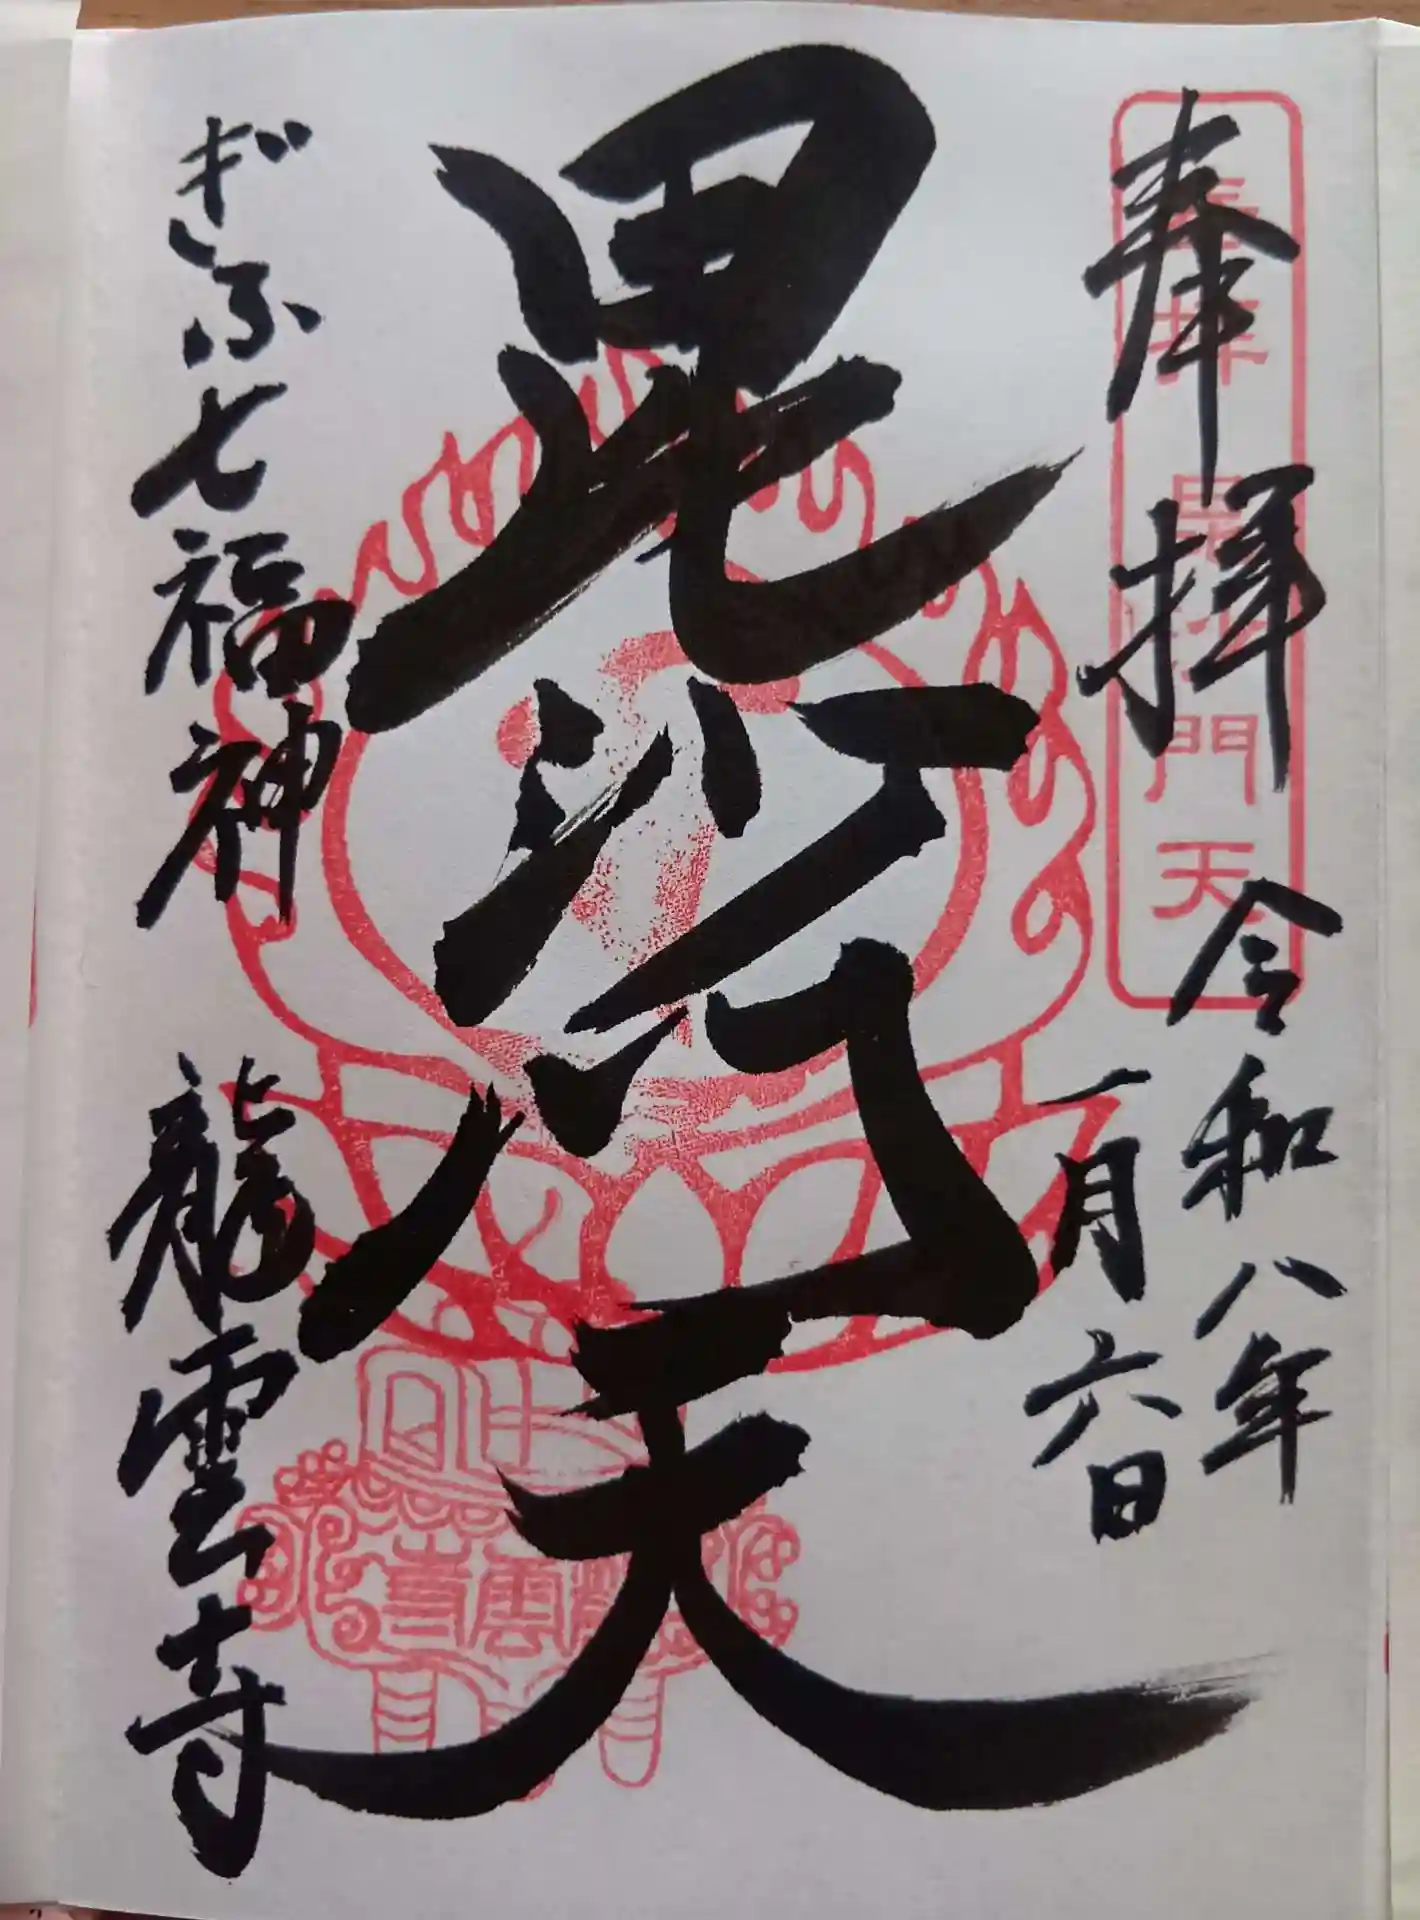 奉拝
令和八年
一月六日
毘沙門天
ぎふ七福神
龍雲寺
門天